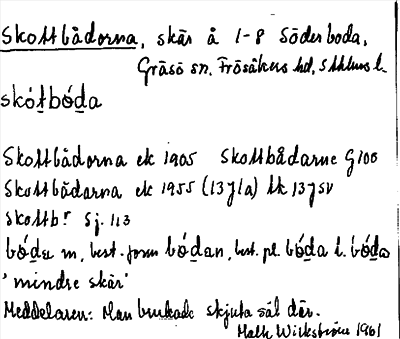 Skottbådorna, skär å 1-8 Söderboda,
Gräsö sn, Frösåkers hd, Sthlms l.
skót̲bó̲d̲a
Skottbådorna ek 1905 Skottbådarne G100
Skottbådarna ek 1955 (13J1a) tk 13JSV
Skottbr Sj. 113
bó̲d̲a m, best. form bó̲d̲an, best. pl. bó̲d̲a l. bó̲d̲a
'mindre skär'
Meddelaren: Man brukade skjuta säl där.
Math Wikström 1961